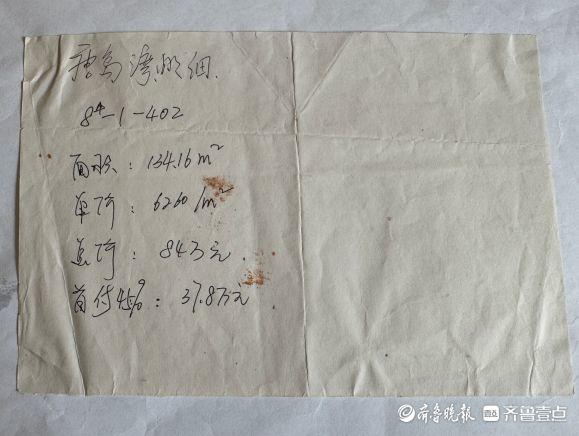 8#-1-402
面积：134.16m²
单价：6260/m²
总价：84万元.
首付45%：37.8万元
齐鲁晚报 齐鲁壹点